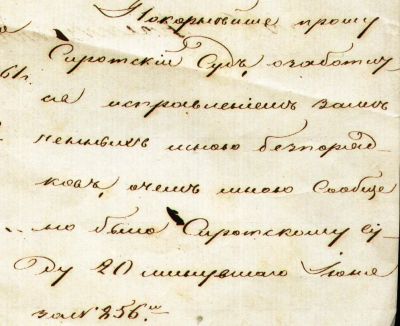 Покорнейше прошу
Сиротскій Судъ озаботит
ся исправленіемъ замѣ
ченныхъ мною безпоряд-
ковъ, очемъ мною сообще
но было Сиротскому Су-
ду 20 минувшаго Іюня
за № 256.м
61г.